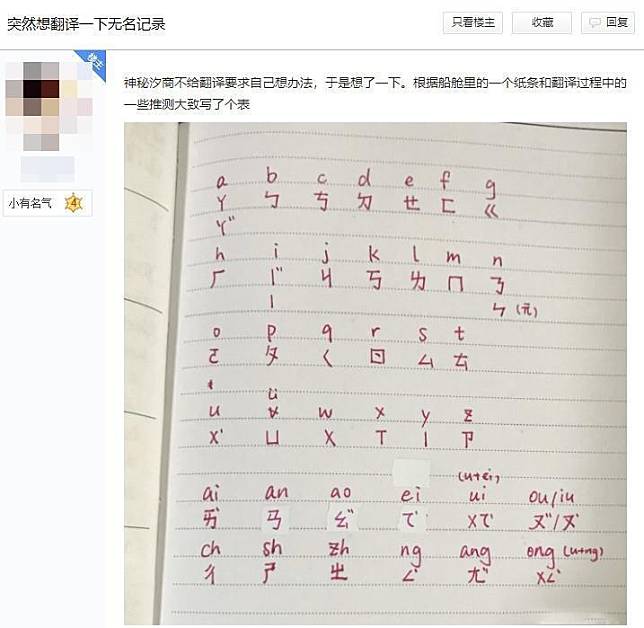 突然想翻译一下无名记录
只看楼主 收藏 回复
楼主
神秘汐商不给翻译要求自己想办法，于是想了一下。根据船舱里的一个纸条和翻译过程中的
一些推测大致写了个表
小有名气 4
a b c d e f g
ㄚ ㄅ ㄘ ㄉ ㄝ ㄈ ㄍ
ㄚ"
h i j k l m n
ㄏ ㄧ" ㄐ ㄎ ㄌ ㄇ ㄋ
ㄧ ㄣ (元)
o p q r s t
ㄛ ㄆ ㄑ ㄖ ㄙ ㄊ
ü
u v w x y z
ㄨ' ㄩ ㄨ ㄒ ㄧ ㄗ
(u+ei)
ai an ao ei ui ou/iu
ㄞ" ㄢ ㄠ" ㄟ" ㄨㄟ" ㄡ"/ㄡ'
ch sh zh ng ang ong (u+ng)
ㄔ ㄕ ㄓ ㄥ' ㄤ" ㄨㄥ'